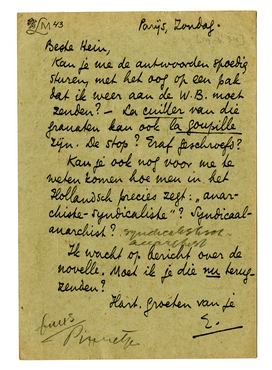 M 43
Parijs, Zondag.
Beste Hein,
Kan je me de antwoorden spoedig
sturen, met het oog op een pak
dat ik weer aan de W.B. moet
zenden? – De cuiller van die
granaten kan ook la goupille
zijn. De stop? Eraf geschroefd?
Kan je ook nog voor me te
weten komen hoe men in het
Hollandsch precies zegt: „anar-
chiste-syndicaliste"? Syndicaal-
anarchist? syndicalistisch
anarchist
Ik wacht op bericht over de
novelle. Moet ik je die nu terug-
zenden?
Hart. groeten van je
E.